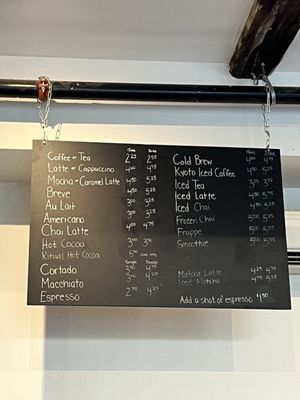 Coffee or Tea 2.25 2.55
Latte or Cappuccino 4.00 4.75
Mocha or Caramel Latte 4.50 5.25
Breve 4.50 5.25
Au Lait 3.00 3.25
Americano 3.00 3.25
Chai Latte 4.00 4.75
Hot Cocoa 3.00 3.50
Ritual Hot Cocoa
Single Double
Cortado 4.75
Macchiato 4.20
Espresso 2.75 4.25
Cold Brew
Kyoto Iced Coffee 4.50 5.25
Iced Tea 3.25 3.75
Iced Latte 4.50 5.25
Iced Chai 4.50 5.25
Frozen Chai 5.00 5.75
Frappe 5.00 5.75
Smoothie 5.00 5.75
Matcha Latte 4.25 4.75
Iced Matcha 4.75 5.25
Add a shot of espresso $1.50